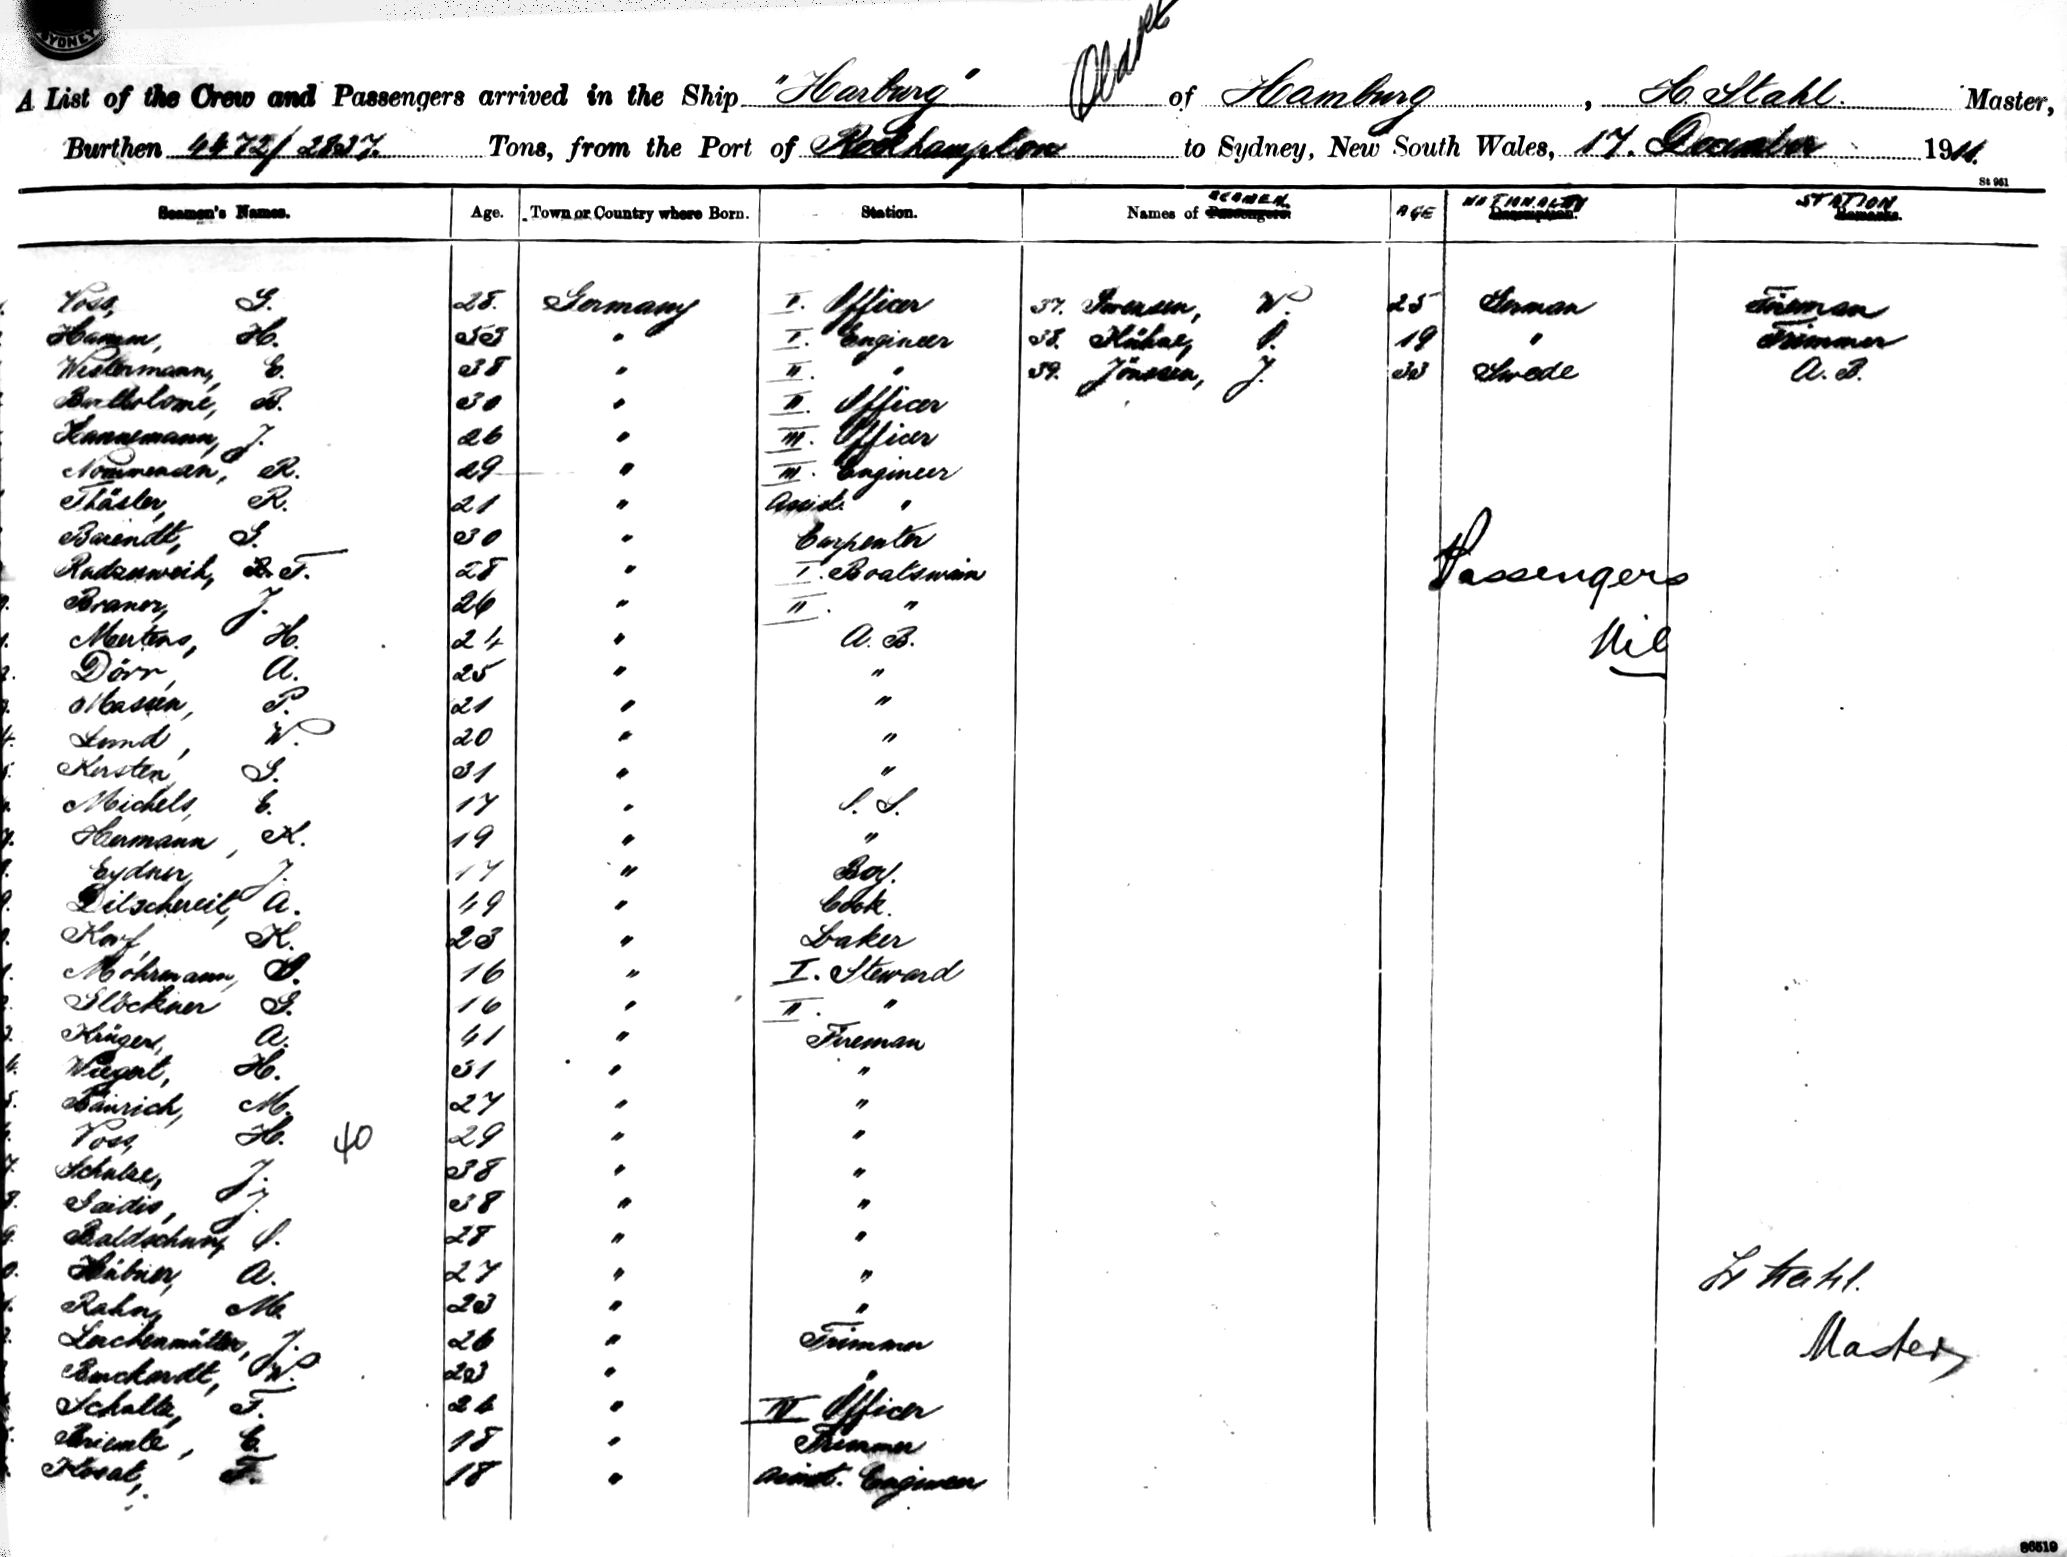 SYDNEY
A List of the Crew and Passengers arrived in the Ship "Harburg" of Hamburg, H. Stahl. Master,
Burthen 4472/2837. Tons, from the Port of Rockhampton to Sydney, New South Wales, 17. December 1911.
St 961
Seamen's Names. Age. Town or Country where Born. Station. Names of Passengers. SEAMEN. AGE NATIONALITY STATION Remarks.
Voss, G. 28. Germany I. Officer 37. Iwersen, W. 25 German Fireman
Hamm, H. 53 " I. Engineer 38. Kühne, O. 19 " Trimmer
Westermann, E. 38 " II. " 39. Jönssen, J. 33 Swede A. B.
Bartholomé, R. 30 " II. Officer
Hannemann, J. 26 " III. Officer
Nommensen, R. 29 " III. Engineer
Thäsler, R. 21 " Assist. "
Barendt, G. 30 " Carpenter
Radzuweit, F. 28 " I. Boatswain
Braner, J. 26 " II. "
Mertens, H. 24 " A. B.
Dörr, A. 25 " "
Massen, P. 21 " "
Lund, W. 20 " "
Kersten, G. 31 " "
Michels, E. 17 " O. S.
Hermann, K. 19 " "
Eydner, J. 17 " Boy.
Dilschereit, A. 49 " Cook.
Korf, K. 23 " Baker
Möhrmann, O. 16 " I. Steward
Glöckner G. 16 " II. "
Krüger, A. 41 " Fireman
Wiegert, H. 31 " "
Bänrich, M. 27 " "
Voss, H. 40 29 " "
Schulze, J. 38 " "
Gaidis, J. 38 " "
Baldschun, O. 28 " "
Hübner, A. 27 " "
Rahn, M. 23 " "
Lerchenmüller, J. 26 " Trimmer
Burchardt, W. 23 " "
Schulte, F. 24 " IV Officer
Briemle, E. 18 " Trimmer
Kosat, F. 18 " Assist. Engineer
Passengers
Nil
H Stahl.
Master
86519